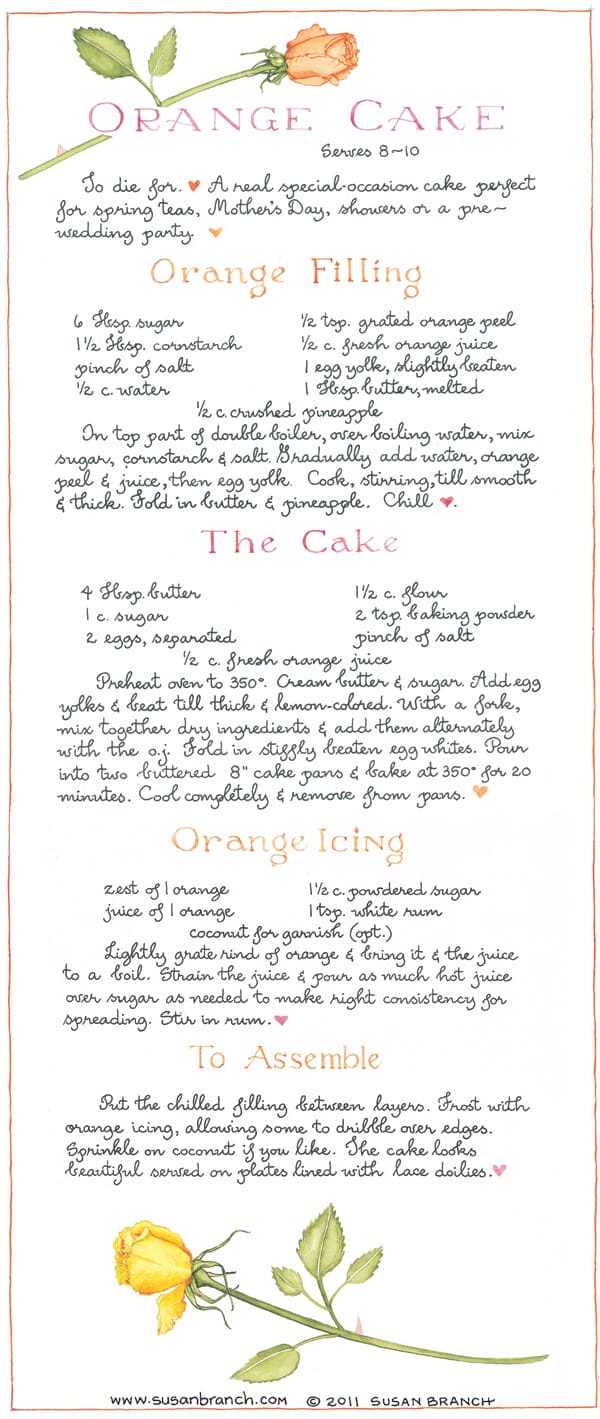 ORANGE CAKE
Serves 8~10
To die for. A real special-occasion cake perfect
for spring teas, Mother's Day, showers or a pre~
wedding party.
Orange Filling
6 Tbsp. sugar ½ tsp. grated orange peel
1½ Tbsp. cornstarch ½ c. fresh orange juice
pinch of salt 1 egg yolk, slightly beaten
½ c. water 1 Tbsp. butter, melted
½ c. crushed pineapple
In top part of double boiler, over boiling water, mix
sugar, cornstarch & salt. Gradually add water, orange
peel & juice, then egg yolk. Cook, stirring, till smooth
& thick. Fold in butter & pineapple. Chill.
The Cake
4 Tbsp. butter 1½ c. flour
1 c. sugar 2 tsp. baking powder
2 eggs, separated pinch of salt
½ c. fresh orange juice
Preheat oven to 350°. Cream butter & sugar. Add egg
yolks & beat till thick & lemon-colored. With a fork,
mix together dry ingredients & add them alternately
with the o.j. Fold in stiffly beaten egg whites. Pour
into two buttered 8" cake pans & bake at 350° for 20
minutes. Cool completely & remove from pans.
Orange Icing
zest of 1 orange 1½ c. powdered sugar
juice of 1 orange 1 tsp. white rum
coconut for garnish (opt.)
Lightly grate rind of orange & bring it & the juice
to a boil. Strain the juice & pour as much hot juice
over sugar as needed to make right consistency for
spreading. Stir in rum.
To Assemble
Put the chilled filling between layers. Frost with
orange icing, allowing some to dribble over edges.
Sprinkle on coconut if you like. The cake looks
beautiful served on plates lined with lace doilies.
www.susanbranch.com © 2011 SUSAN BRANCH